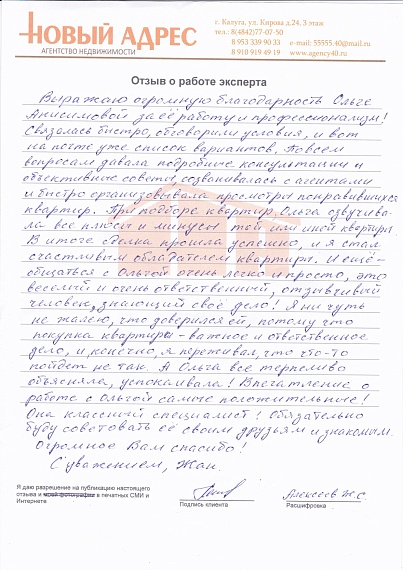 НОВЫЙ АДРЕС
АГЕНТСТВО НЕДВИЖИМОСТИ
г. Калуга, ул. Кирова д.24, 3 этаж
тел.: 8(4842)77-07-50
8 953 339 90 33 e-mail: 55555.40@mail.ru
8 910 919 49 19 www.agency40.ru
Отзыв о работе эксперта
Выражаю огромную благодарность Ольге
Анисимовой за её работу и профессионализм!
Связалась быстро, обговорили условия, и вот
на почте уже список вариантов. По всем
вопросам давала подробные консультации и
объективные советы, созванивалась с агентами
и быстро организовывала просмотры понравившихся
квартир. При подборе квартир Ольга озвучива-
ла все плюсы и минусы той или иной квартиры.
В итоге сделка прошла успешно, и я стал
счастливым обладателем квартиры. И ещё -
общаться с Ольгой очень легко и просто, это
веселый и очень ответственный, отзывчивый
человек, знающий своё дело! Я ни чуть
не жалею, что доверился ей, потому что
покупка квартиры - важное и ответственное
дело, и конечно, я переживал, что что-то
пойдет не так. А Ольга всё терпеливо
объясняла, успокаивала! Впечатление о
работе с Ольгой самые положительные!
Она классный специалист! Обязательно
буду советовать её своим друзьям и знакомым.
Огромное Вам спасибо!
С уважением, Жан.
Я даю разрешение на публикацию настоящего
отзыва и моей фотографии в печатных СМИ и
Интернете
Подпись клиента
Алексеев Ж.С.
Расшифровка